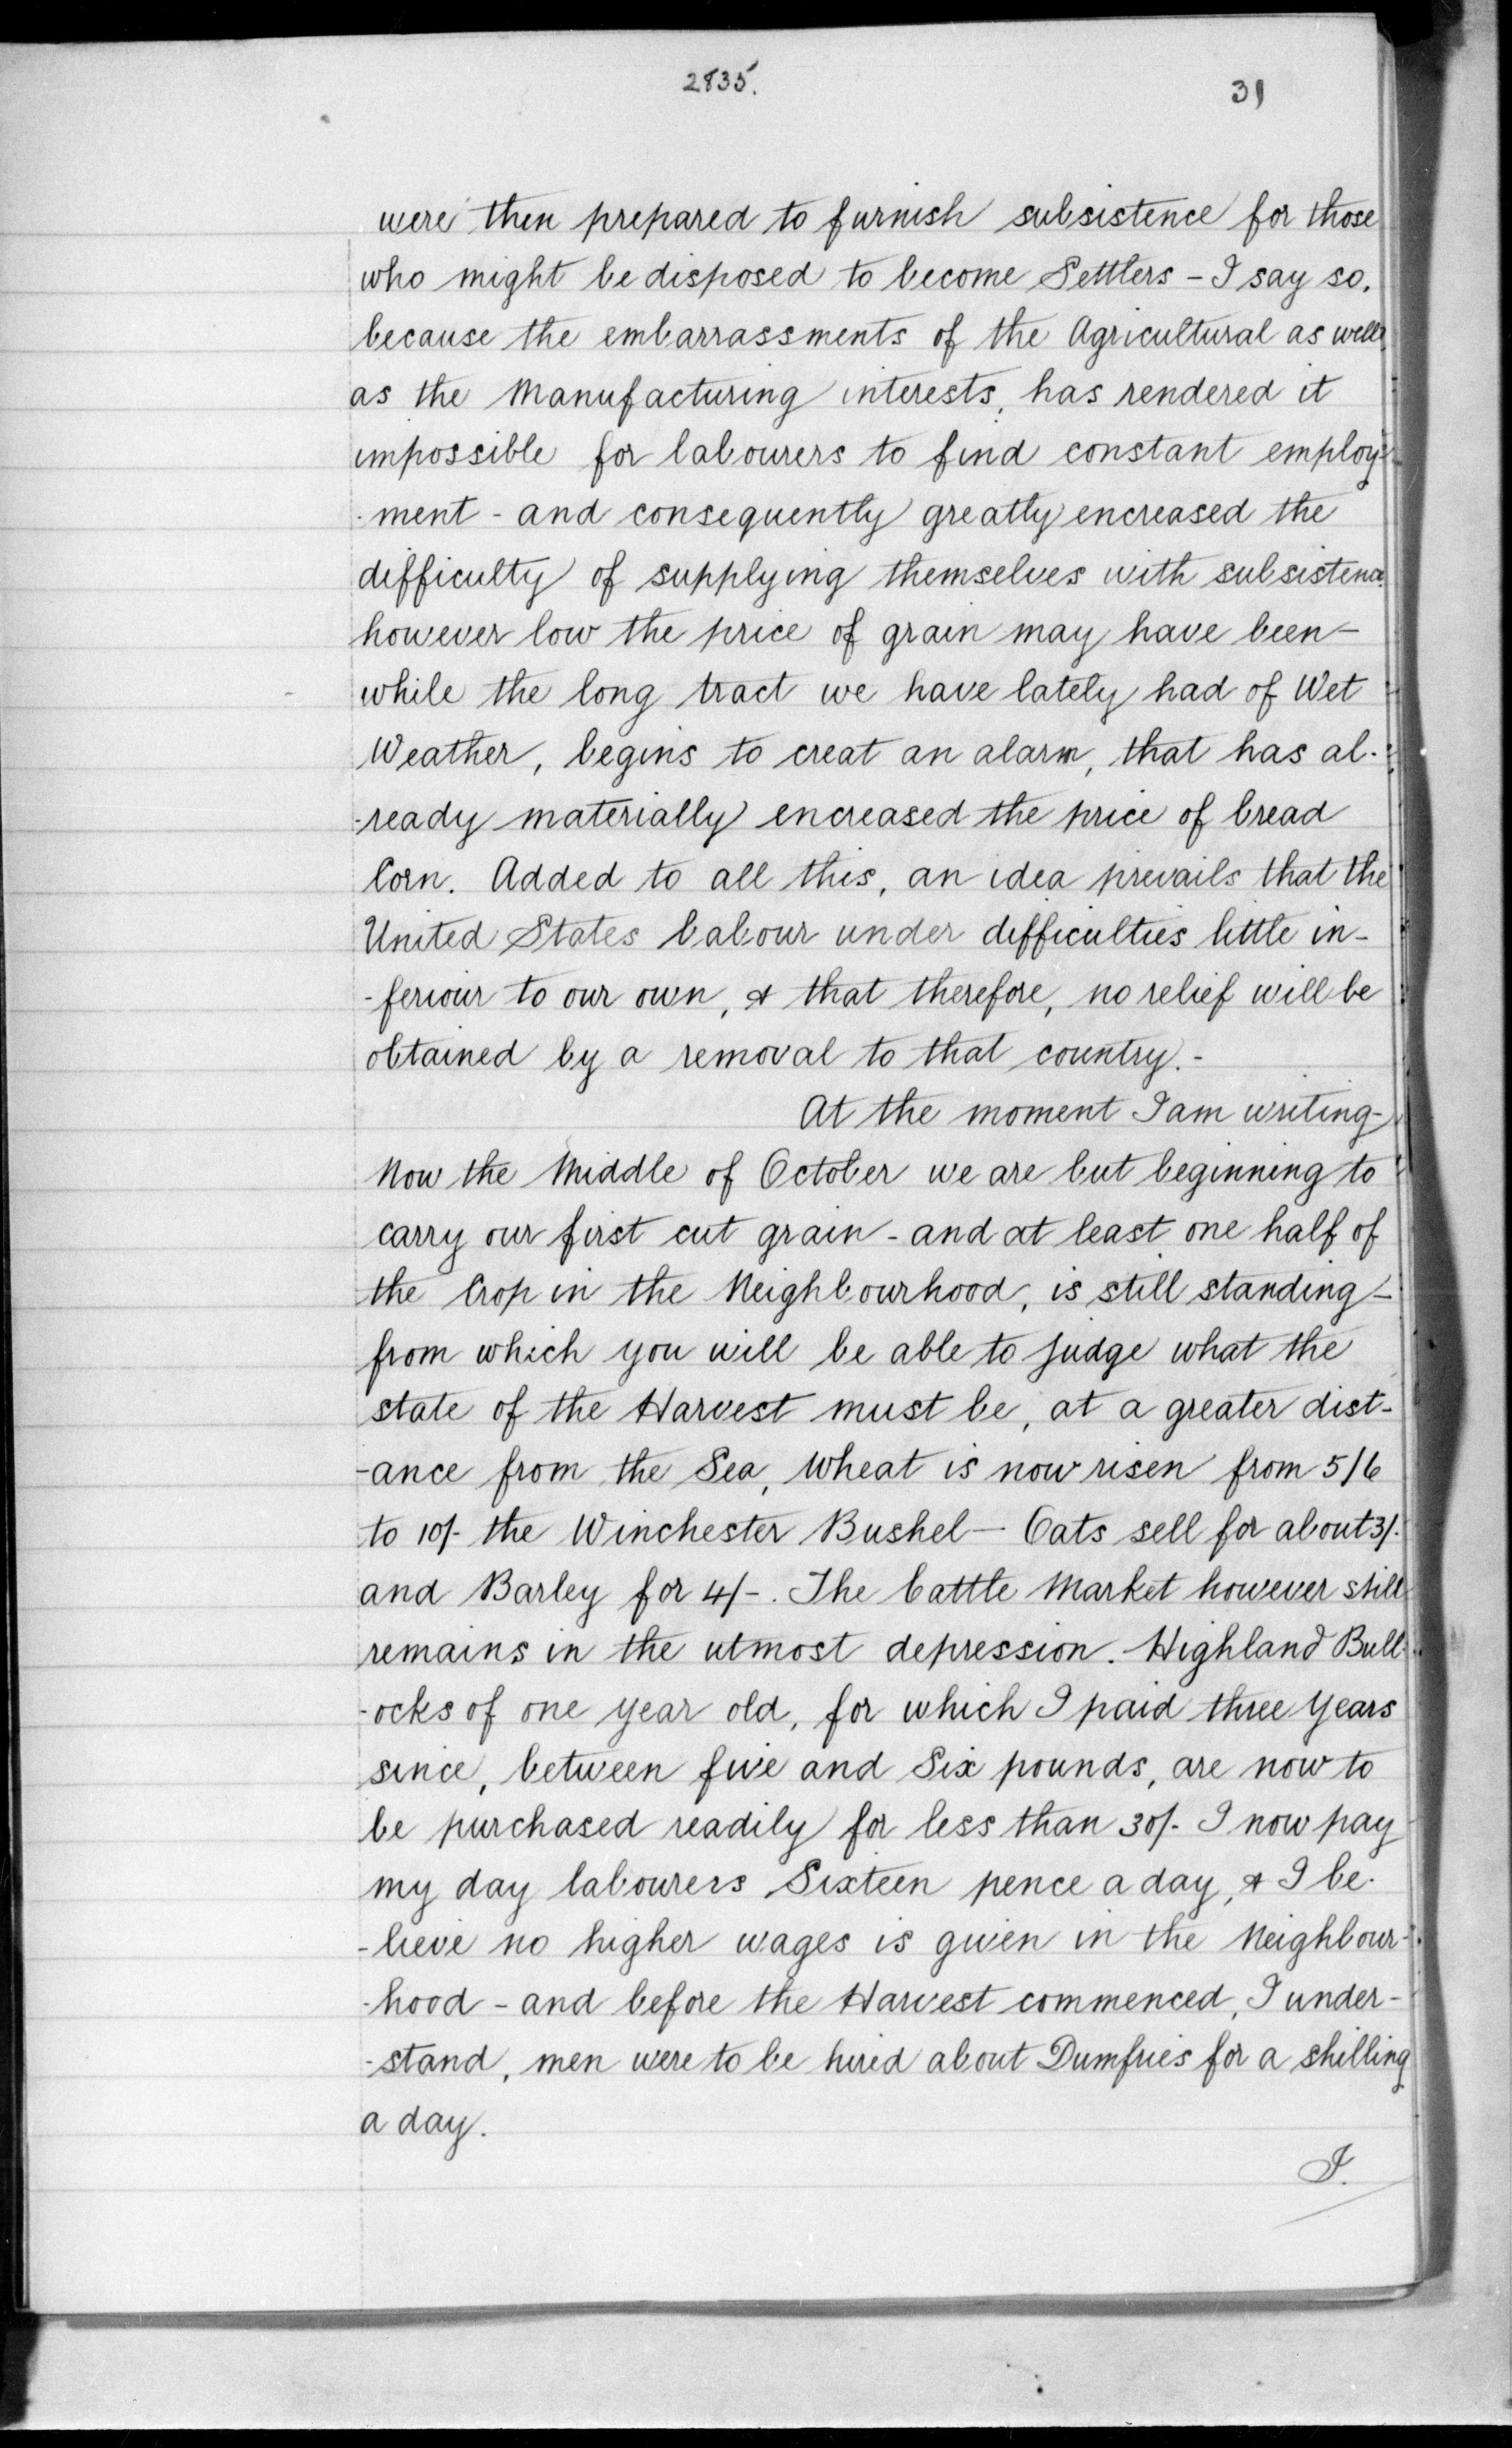 2835.
31
were then prepared to furnish subsistence for those
who might be disposed to become Settlers - I say so,
because the embarrassments of the Agricultural as well
as the Manufacturing interests, has rendered it
impossible for labourers to find constant employ-
-ment - and consequently greatly encreased the
difficulty of supplying themselves with subsistence
however low the price of grain may have been -
while the long tract we have lately had of Wet
Weather, begins to creat an alarm, that has al-
-ready materially encreased the price of bread
Corn. Added to all this, an idea prevails that the
United States labour under difficulties little in-
-feriour to our own, & that therefore, no relief will be
obtained by a removal to that country. -
At the moment I am writing -
Now the Middle of October we are but beginning to
carry our first cut grain - and at least one half of
the Crop in the Neighbourhood, is still standing -
from which you will be able to judge what the
state of the Harvest must be, at a greater dist-
-ance from the Sea, Wheat is now risen from 5/6
to 10/- the Winchester Bushel - Oats sell for about 3/-
and Barley for 4/-. The Cattle Market however still
remains in the utmost depression. Highland Bull-
-ocks of one year old, for which I paid three Years
since, between five and Six pounds, are now to
be purchased readily for less than 30/- I now pay
my day labourers Sixteen pence a day, & I be-
-lieve no higher wages is given in the Neighbour-
-hood - and before the Harvest commenced, I under-
-stand, men were to be hired about Dumfries for a shilling
a day.
I.